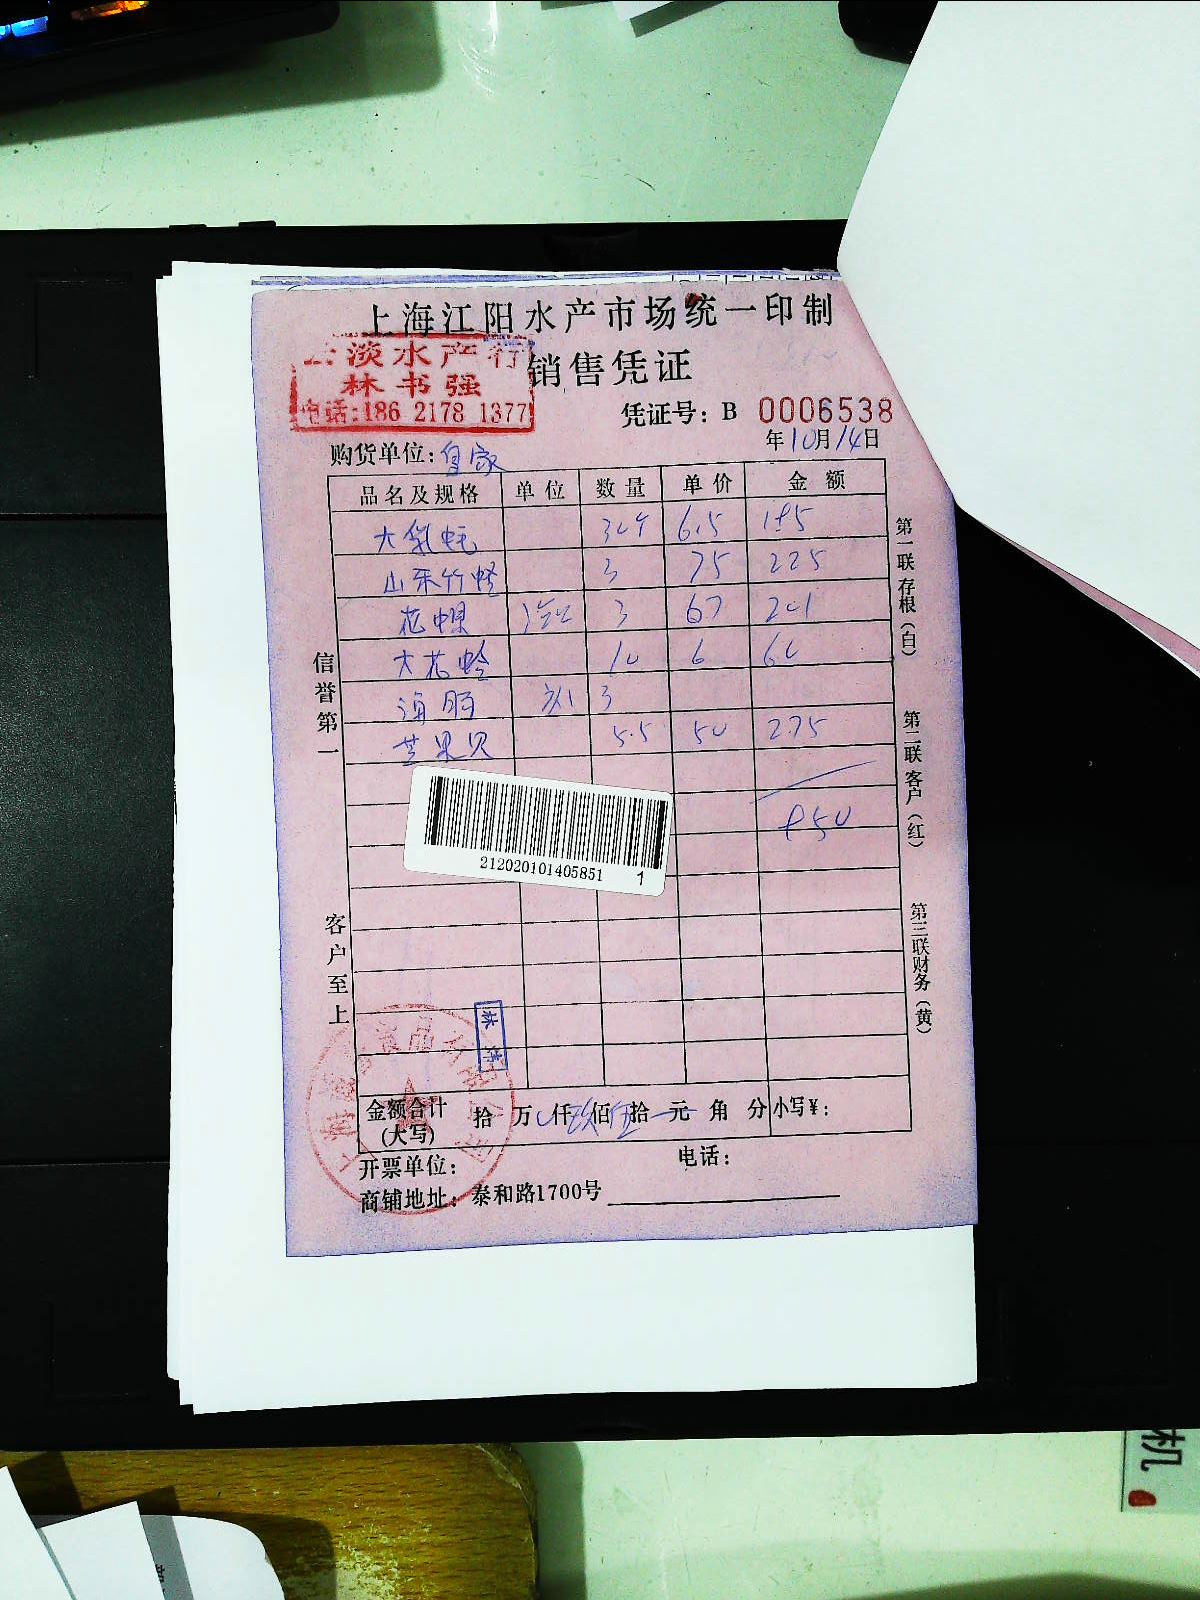 上海江阳水产市场统一印制
淡水产行
林书强
电话:186 2178 1377
销售凭证
凭证号: B 0006538
年10月14日
购货单位:
品名及规格 单位 数量 单价 金额
大 6.5
山东竹蛏 3 75 225
花 3 67 201
大花蛤 10 6 60
海肠 3
芒果贝 5.5 50 275
950
212020101405851 1
信誉第一
客户至上
第一联存根(白)
第二联客户(红)
第三联财务(黄)
金额合计(大写) 拾 万 仟 佰 拾 元 角 分 小写¥:
开票单位: 电话:
商铺地址: 泰和路1700号
机